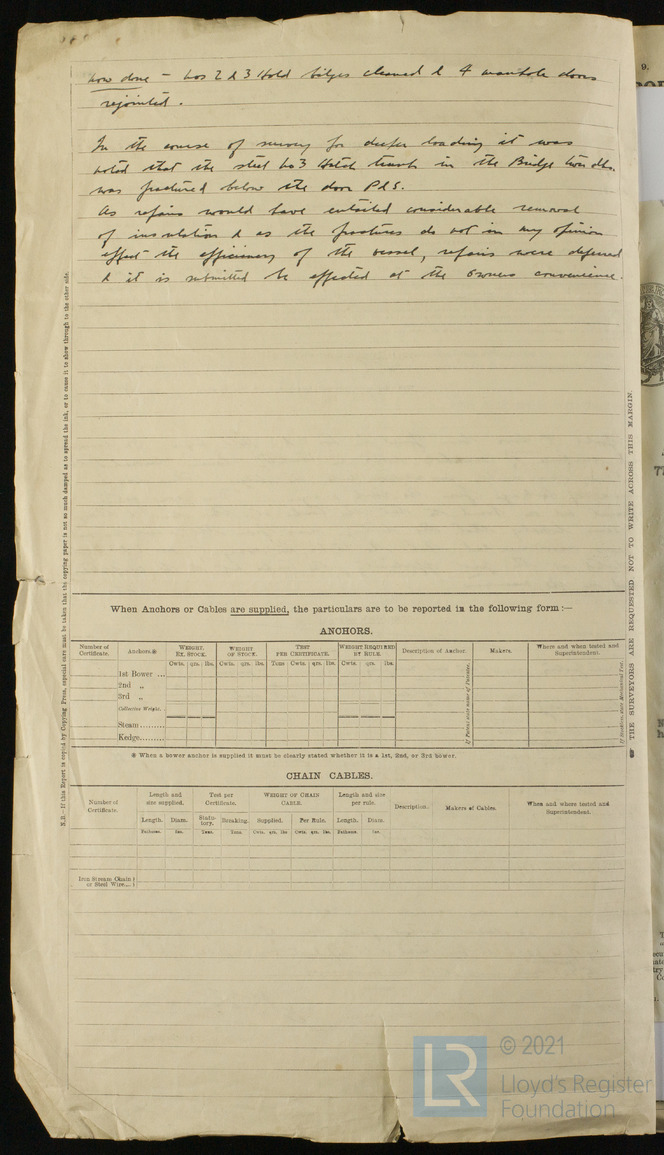 now done - Nos 2 & 3 Hold bilges cleaned & 4 manhole doors
rejointed.
In the course of survey for deeper loading it was
noted that the steel No 3 Hatch trunk in the Bridge tween dks.
was fractured below the door P & S.
As repairs would have entailed considerable removal
of insulation & as the fractures do not in my opinion
effect the efficiency of the vessel, repairs were deferred
& it is submitted be effected at the owners convenience.
N.B.—If this Report is copied by Copying Press, especial care must be taken that the copying paper is not so much damped as to spread the ink, or to cause it to show through to the other side.
THE SURVEYORS ARE REQUESTED NOT TO WRITE ACROSS THIS MARGIN.
When Anchors or Cables are supplied, the particulars are to be reported in the following form :—
ANCHORS.
Number of Certificate. Anchors.* WEIGHT. EX. STOCK. WEIGHT OF STOCK. TEST PER CERTIFICATE. WEIGHT REQUIRED BY RULE. Description of Anchor. Makers. Where and when tested and Superintendent.
Cwts. qrs. lbs. Cwts. qrs. lbs. Tons Cwts. qrs. lbs. Cwts. qrs. lbs.
1st Bower ...
2nd „
3rd „
Collective Weight.
Steam.........
Kedge.........
If Patent, state name of Patentee.
* When a bower anchor is supplied it must be clearly stated whether it is a 1st, 2nd, or 3rd bower.
CHAIN CABLES.
Number of Certificate. Length and size supplied. Test per Certificate. WEIGHT OF CHAIN CABLE. Length and size per rule. Description. Makers of Cables. When and where tested and Superintendent.
Length. Diam. Statutory. Breaking. Supplied. Per Rule. Length. Diam.
Fathoms. Ins. Tons. Tons Cwts. qrs. lbs Cwts. qrs. lbs. Fathoms. Ins.
Iron Stream Chain
or Steel Wire...
LR
© 2021
Lloyd's Register
Foundation